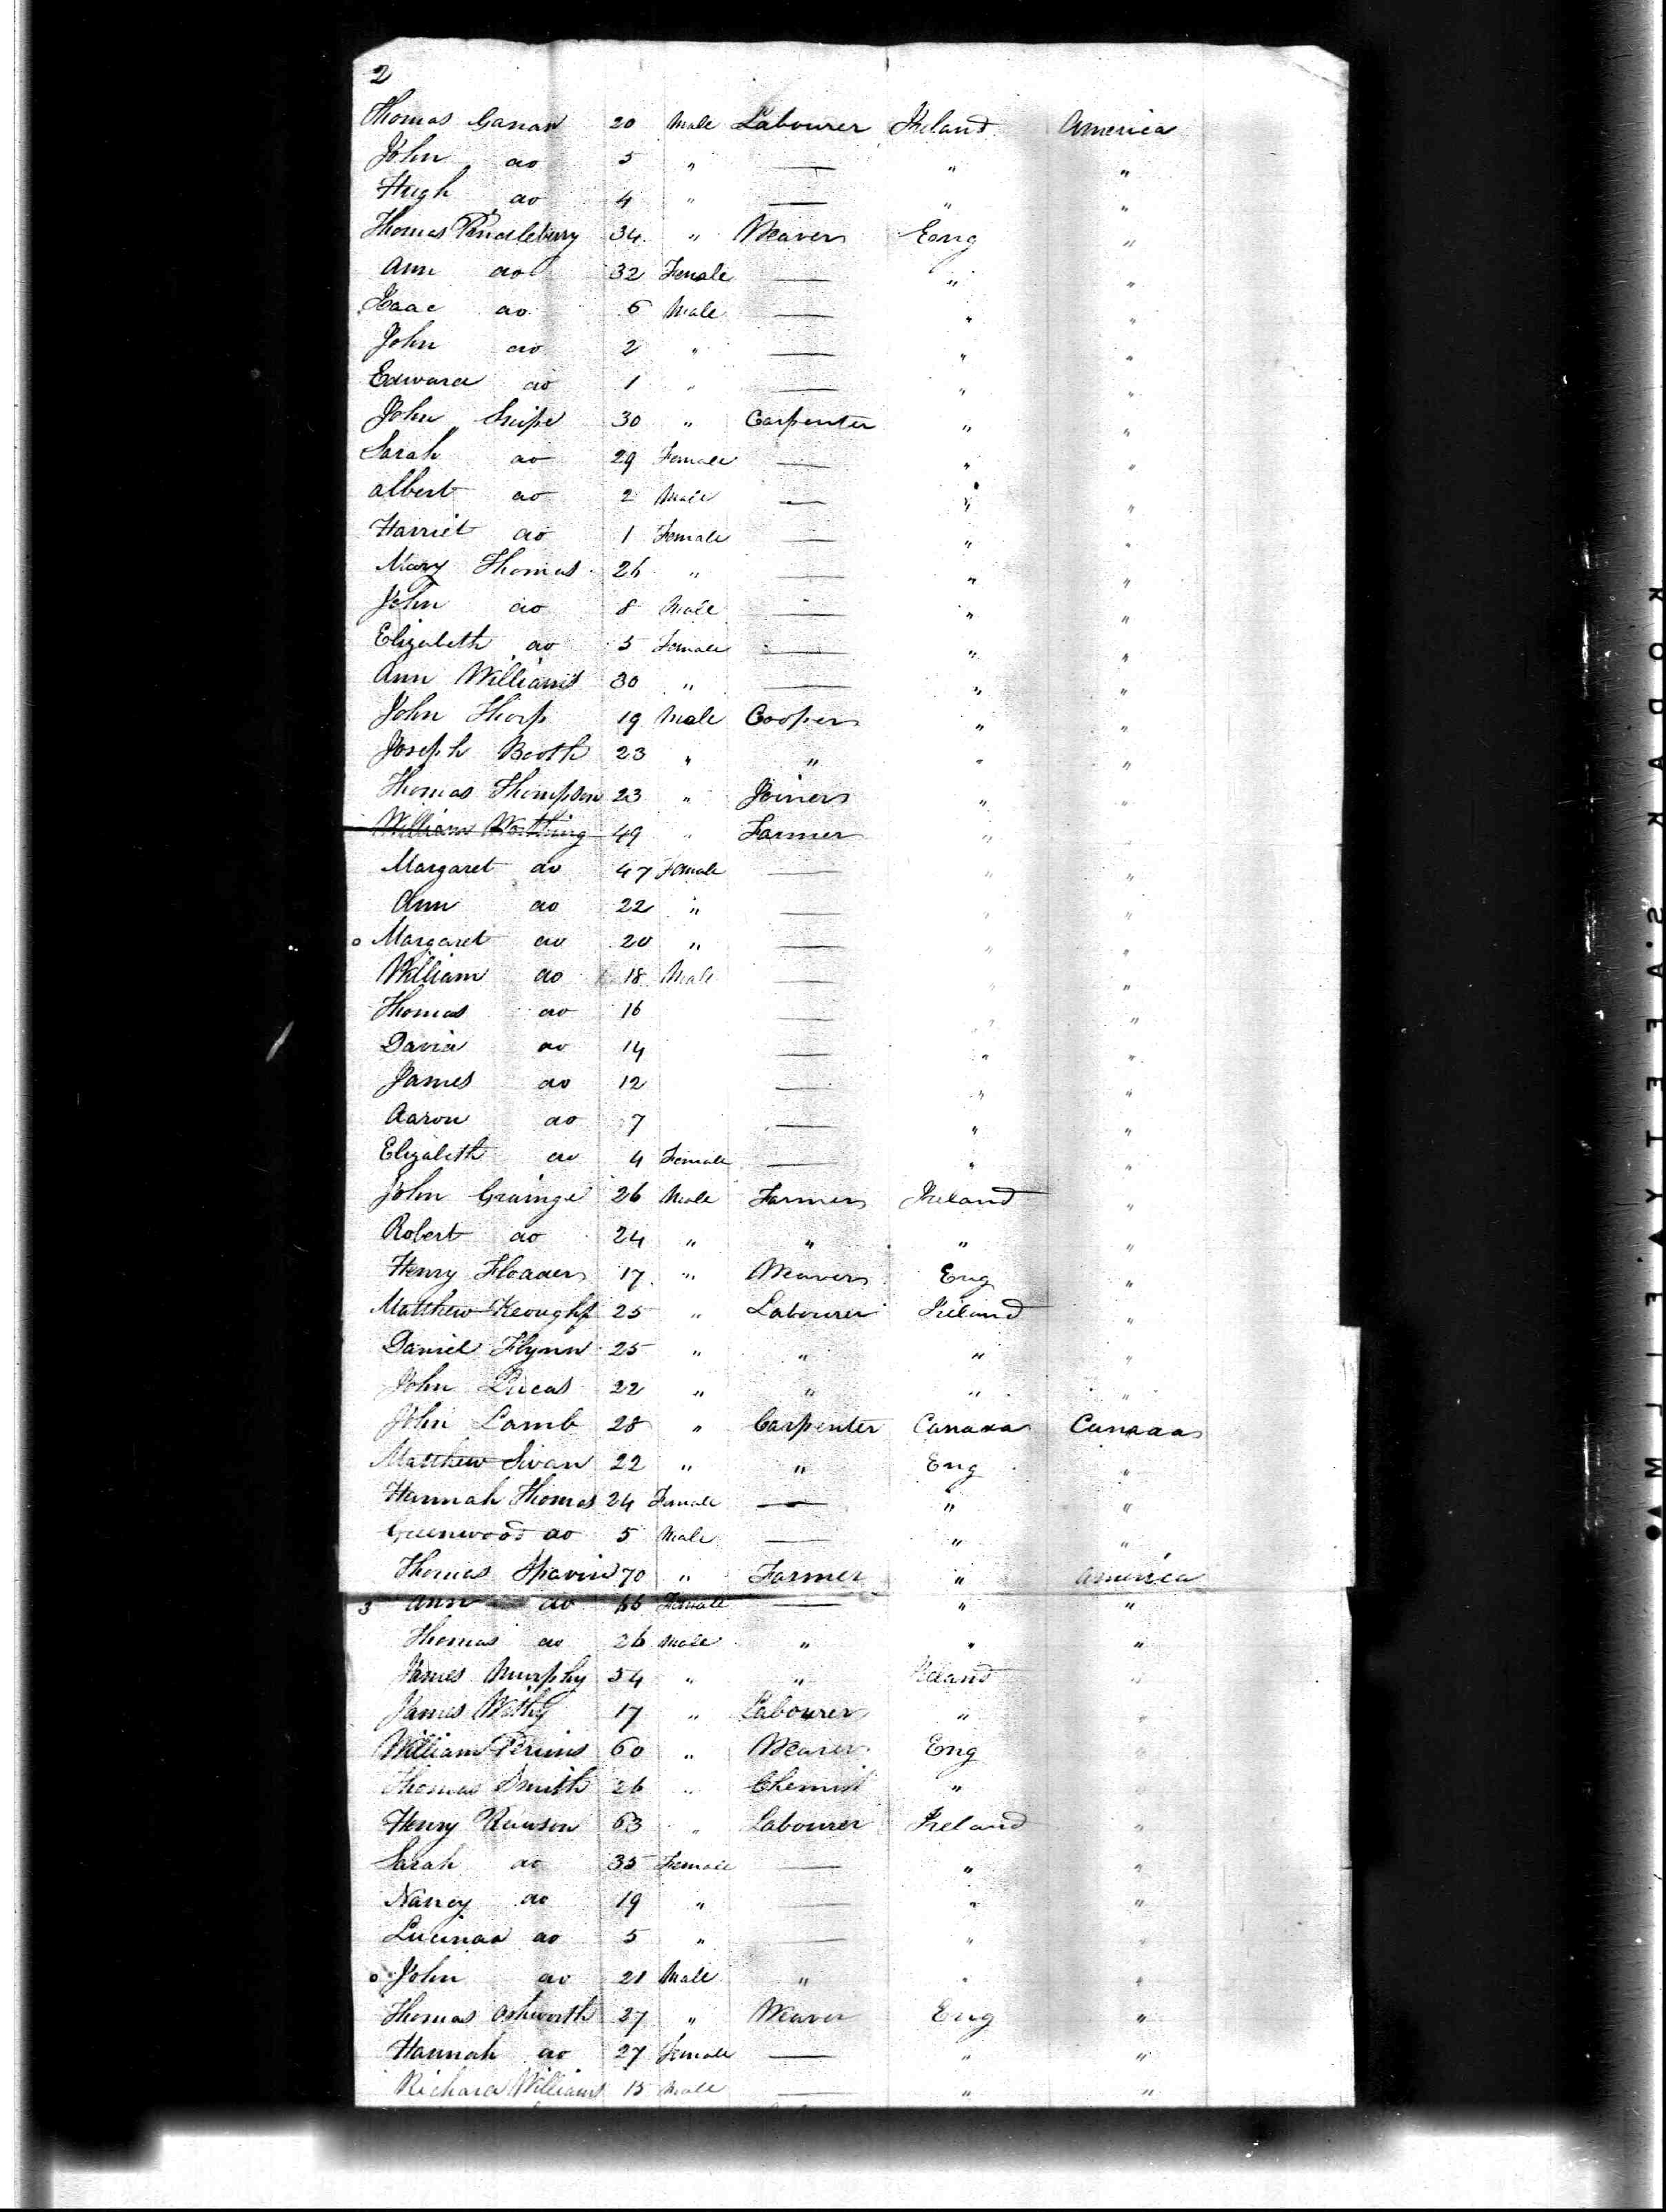 2
Thomas Ganan 20 Male Labourer Ireland America
John do 5 " — " "
Hugh do 4 " — " "
Thomas Pendlebury 34 " Weaver Eng "
Ann do 32 Female — " "
Isaac do 6 Male — " "
John do 2 " — " "
Edward do 1 " — " "
John Snipe 30 " Carpenter " "
Sarah do 29 Female — " "
Albert do 2 Male — " "
Harriet do 1 Female — " "
Mary Thomas 26 " — " "
John do 8 Male — " "
Elizabeth do 5 Female — " "
Ann Williams 30 " — " "
John Thorp 19 Male Cooper " "
Joseph Booth 23 " " " "
Thomas Thompson 23 " Joiner " "
William 49 " Farmer "
Margaret do 47 Female — " "
Ann do 22 " — " "
o Margaret do 20 " — " "
William do 18 Male — " "
Thomas do 16 — " "
David do 14 — " "
James do 12 — " "
Aaron do 7 — " "
Elizabeth do 4 Female — " "
John Grainge 26 Male Farmer Ireland "
Robert do 24 " " " "
Henry 17 " Weaver Eng "
Matthew 25 " Labourer Ireland "
Daniel Flynn 25 " " " "
John Lucas 22 " " " "
John Lamb 28 " Carpenter Canada Canada
Matthew Swan 22 " " Eng "
Hannah Thomas 24 Female — " "
Greenwood do 5 Male — " "
Thomas Spavin 70 " Farmer " America
3 Ann do Female — " "
Thomas do 26 Male " " "
James Murphy 54 " " Ireland "
James 17 " Labourer " "
William 60 " Weaver Eng "
Thomas Smith 26 " Chemist " "
Henry Rawson 63 " Labourer Ireland "
Sarah do 35 Female — " "
Nancy do 19 " — " "
Lucinda do 5 " — " "
o John do 21 Male " " "
Thomas Ashworth 27 " Weaver Eng "
Hannah do 27 Female — " "
Richard Williams 15 Male — " "
KODAK S.A.F.E.T.Y. F.I.L.M